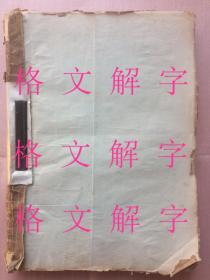 格文解字
格文解字
格文解字